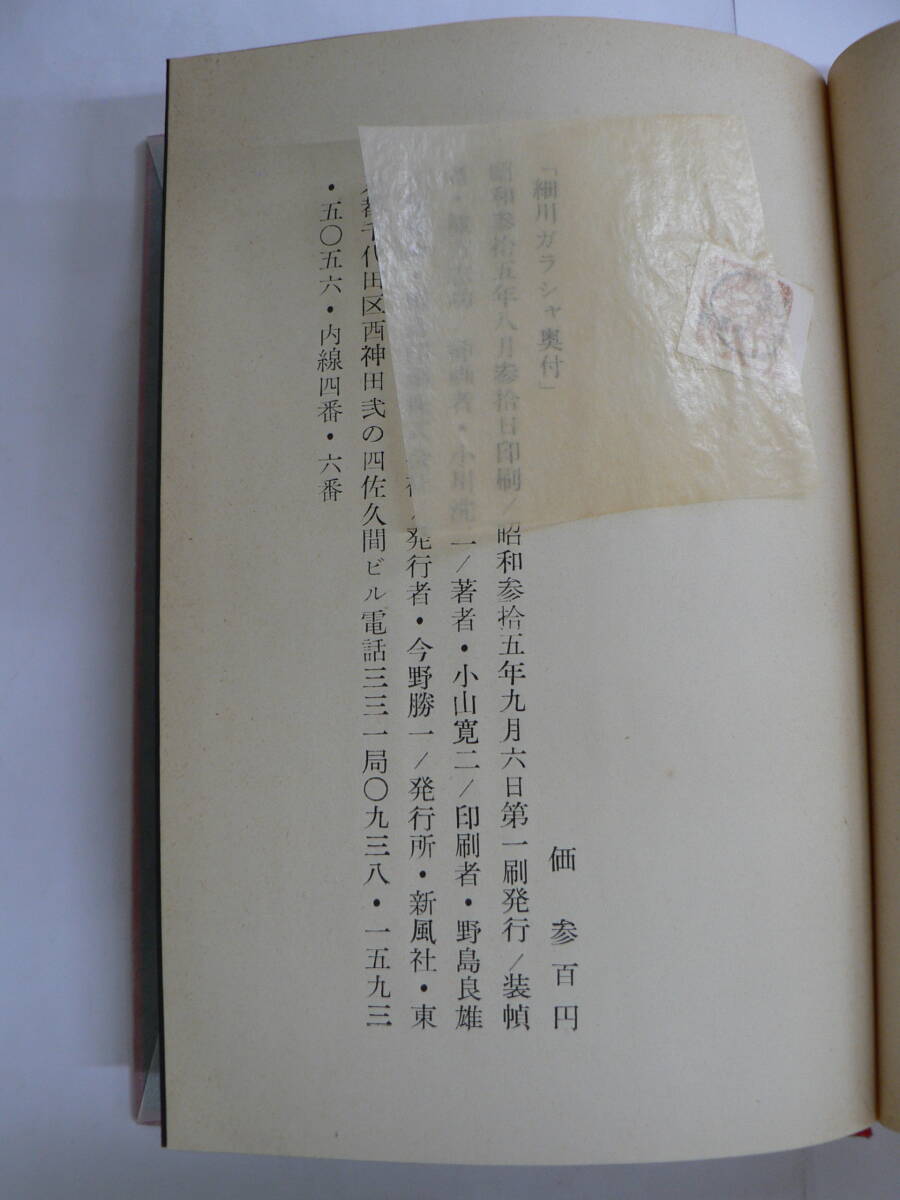 「細川ガラシャ奥付」
価 参百円
昭和参拾五年八月参拾日印刷/昭和参拾五年九月六日第一刷発行/装幀
者・小川 一/著者・小山寛二/印刷者・野島良雄
発行者・今野勝一/発行所・新風社・東
都千代田区西神田弐の四佐久間ビル電話三三一局〇九三八・一五九三
・五〇五六・内線四番・六番